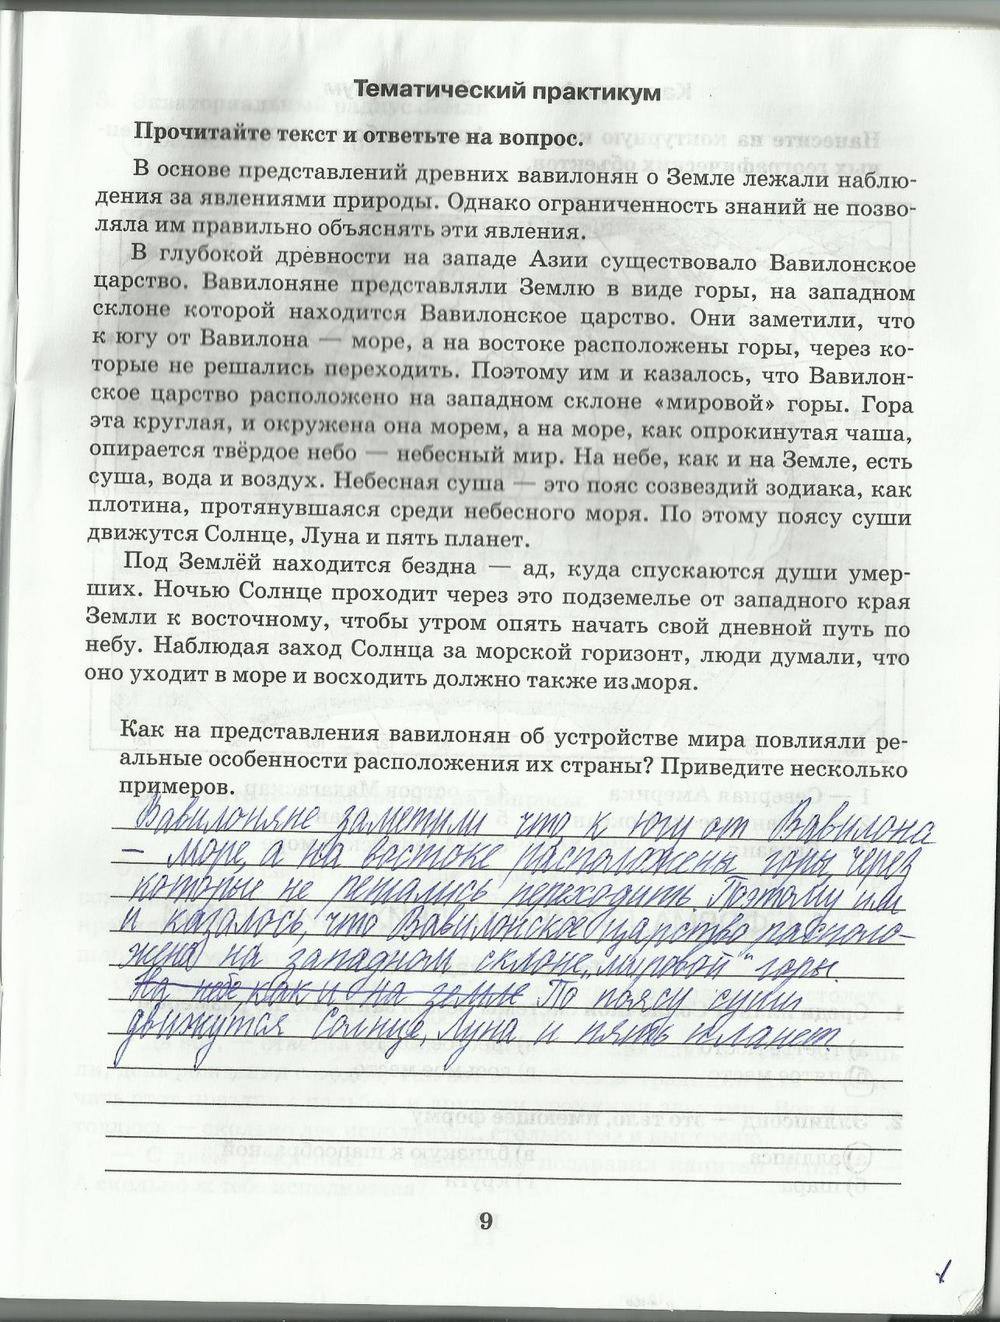 Тематический практикум
Прочитайте текст и ответьте на вопрос.
В основе представлений древних вавилонян о Земле лежали наблю-
дения за явлениями природы. Однако ограниченность знаний не позво-
ляла им правильно объяснять эти явления.
В глубокой древности на западе Азии существовало Вавилонское
царство. Вавилоняне представляли Землю в виде горы, на западном
склоне которой находится Вавилонское царство. Они заметили, что
к югу от Вавилона — море, а на востоке расположены горы, через ко-
торые не решались переходить. Поэтому им и казалось, что Вавилон-
ское царство расположено на западном склоне «мировой» горы. Гора
эта круглая, и окружена она морем, а на море, как опрокинутая чаша,
опирается твёрдое небо — небесный мир. На небе, как и на Земле, есть
суша, вода и воздух. Небесная суша — это пояс созвездий зодиака, как
плотина, протянувшаяся среди небесного моря. По этому поясу суши
движутся Солнце, Луна и пять планет.
Под Землёй находится бездна — ад, куда спускаются души умер-
ших. Ночью Солнце проходит через это подземелье от западного края
Земли к восточному, чтобы утром опять начать свой дневной путь по
небу. Наблюдая заход Солнца за морской горизонт, люди думали, что
оно уходит в море и восходить должно также из моря.
Как на представления вавилонян об устройстве мира повлияли ре-
альные особенности расположения их страны? Приведите несколько
примеров.
Вавилоняне заметили что к югу от Вавилона
– море, а на востоке расположены горы, через
которые не решались переходить. Поэтому им
и казалось, что Вавилонское царство располо-
жено на западном склоне „мировой" горы.
На небе как и на земле По поясу суши
движутся Солнце, Луна и пять планет.
9